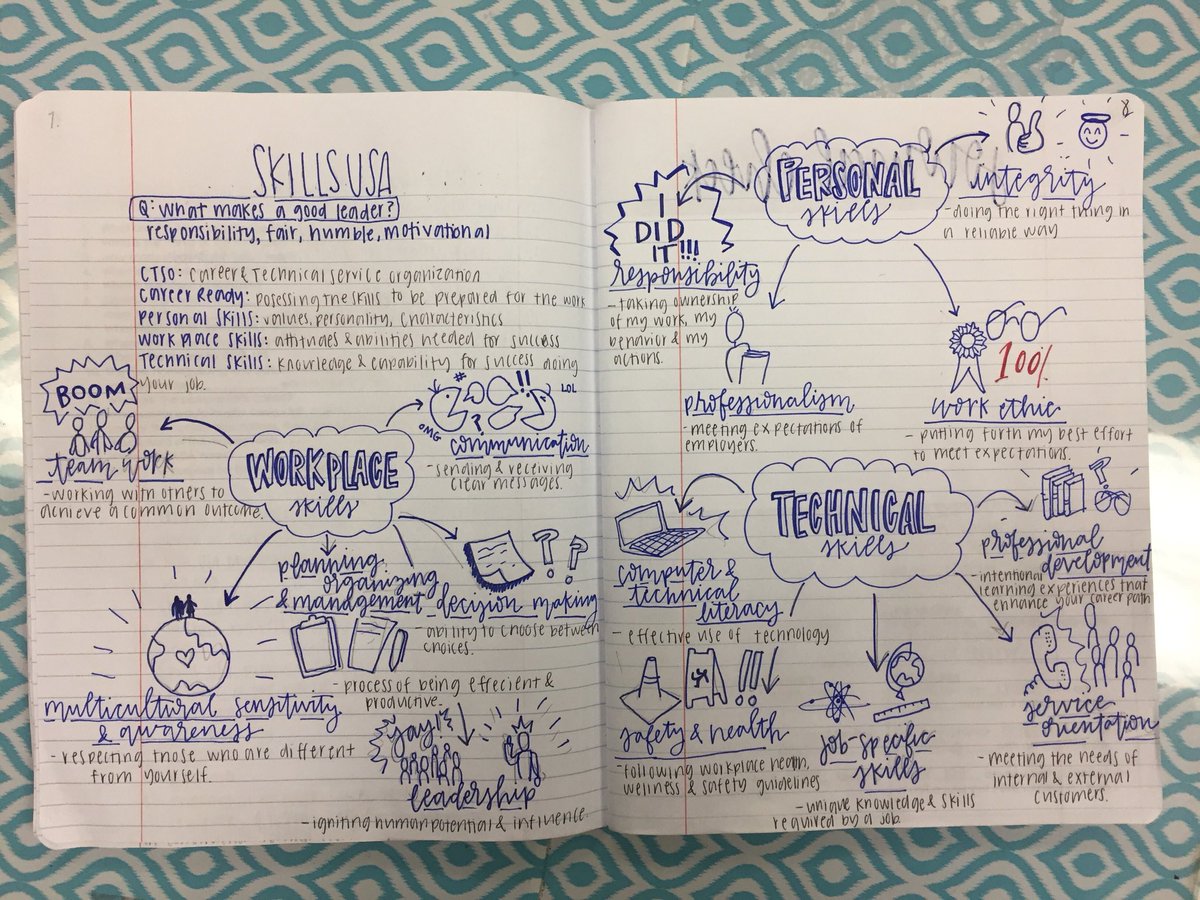 7.
SKILLSUSA
Q: What makes a good leader?
responsibility, fair, humble, motivational
CTSO: Career & Technical service organization
Career Ready: posessing the skills to be prepared for the work
Personal skills: values, personality, characteristics
Workplace skills: attitudes & abilities needed for success
Technical skills: knowledge & capability for success doing
your job.
BOOM
team work
- working with others to
achieve a common outcome.
WORKPLACE
skills
#
!!
?
OMG
LOL
communication
- sending & receiving
clear messages.
planning,
organizing
& mandgement
- process of being effecient &
productive.
??
decision making
- ability to choose between
choices.
multicultural sensitivity
& awareness
- respecting those who are different
from yourself.
yay!
leadership
- igniting human potential & influence.
8
PERSONAL
skills
I
DID
IT!!!
responsibility
- taking ownership
of my work, my
behavior & my
actions.
integrity
- doing the right thing in
a reliable way
professionalism
- meeting expectations of
employers.
100%
work ethic
- putting forth my best effort
to meet expectations.
TECHNICAL
skills
computer &
technical
literacy
- effective use of technology
?
professional
development
- intentional
learning experiences that
enhance your career path
!!!
safety & health
- following workplace health,
wellness & safety guidelines
job-specific
skills
- unique knowledge & skills
required by a job.
service
orientation
- meeting the needs of
internal & external
customers.